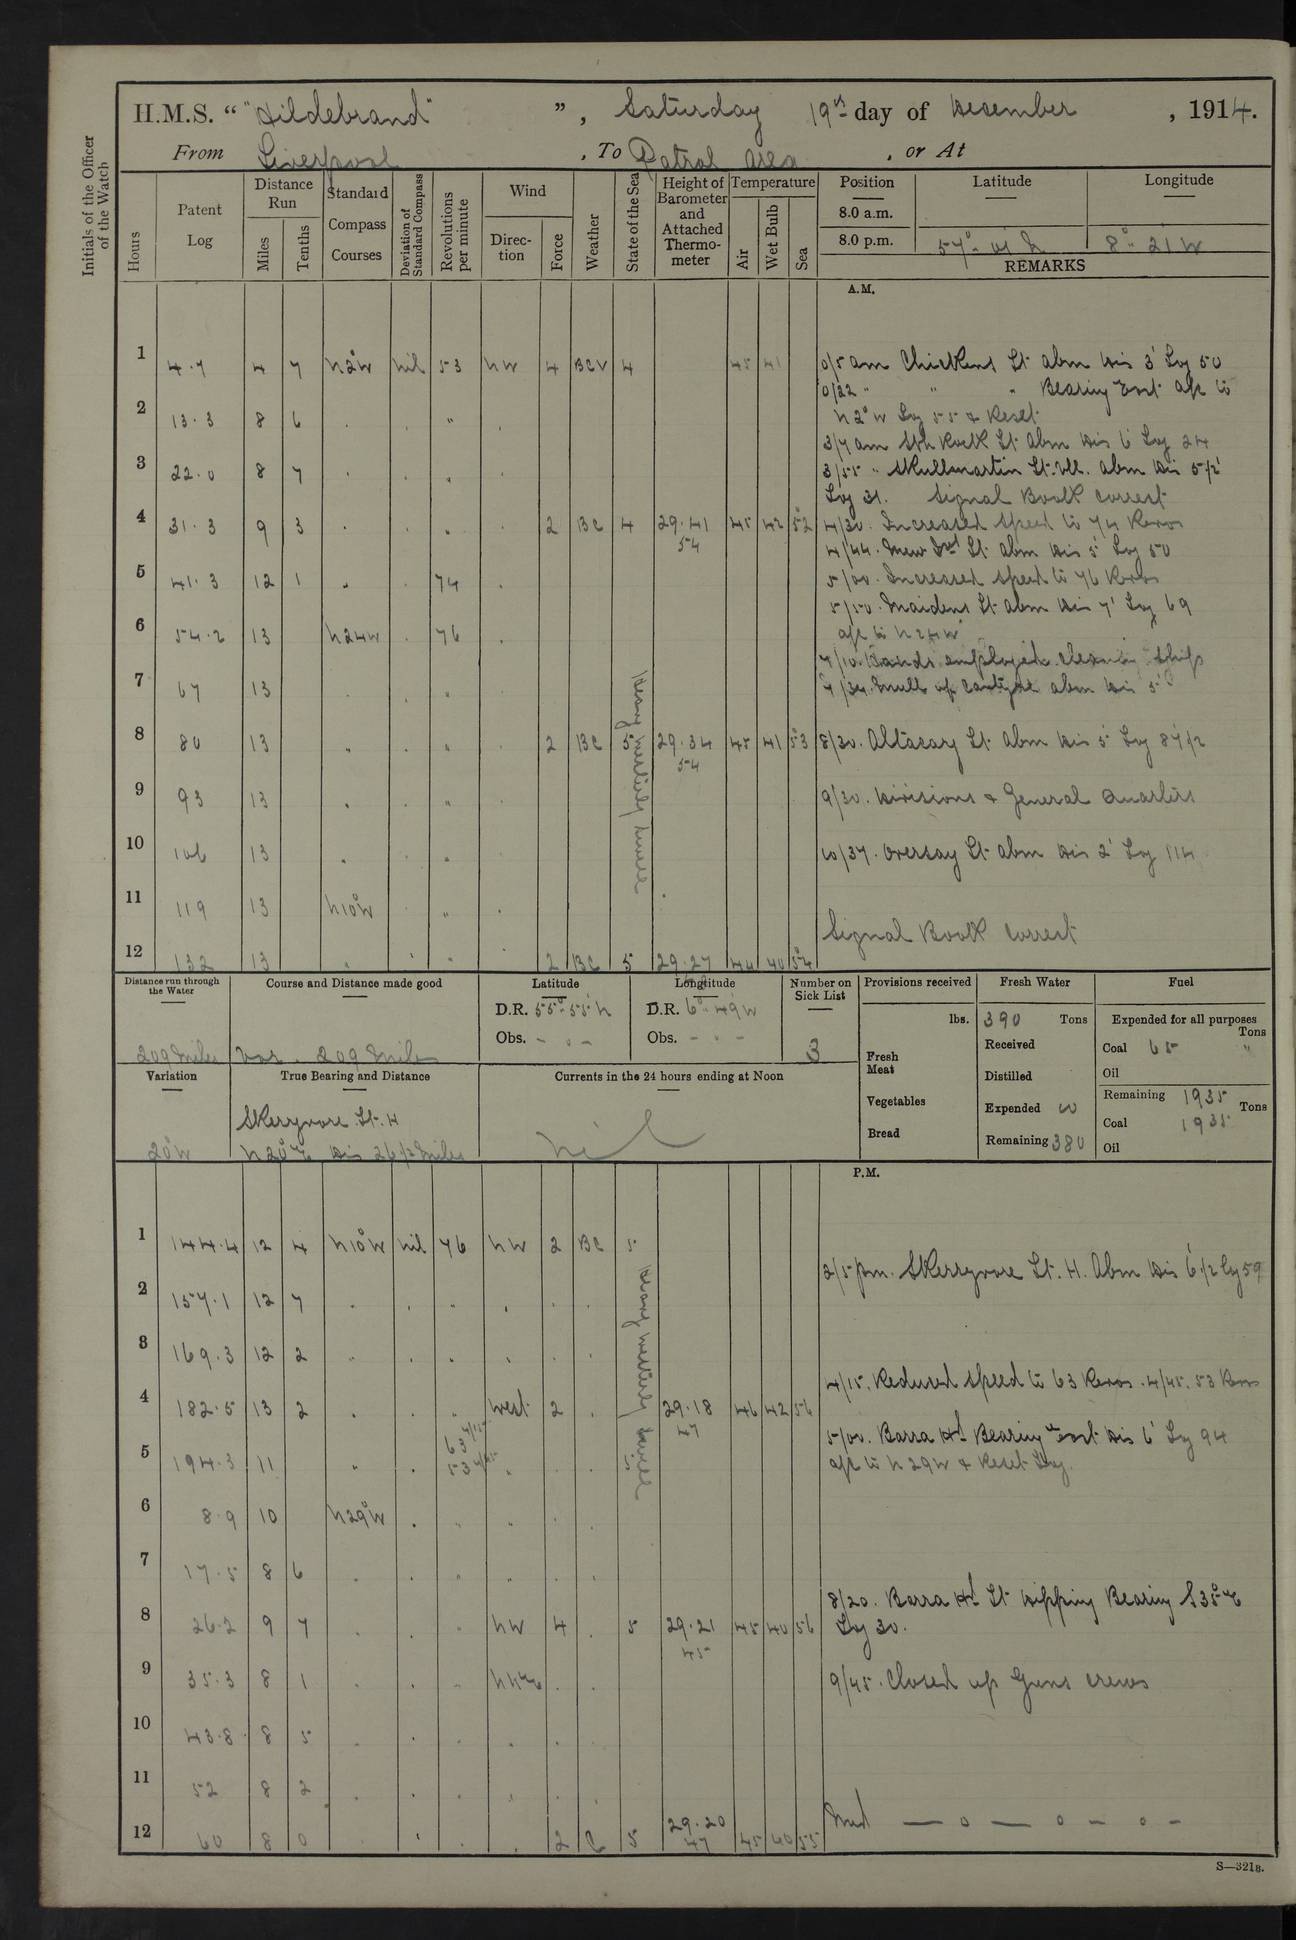 H.M.S. “ "Hildebrand" ”, Saturday 19th day of December, 1914.
From Liverpool, To Patrol Area, or At
Initials of the Officer of the Watch
Hours
Patent Log
Distance Run
Miles
Tenths
Standard Compass Courses
Deviation of Standard Compass
Revolutions per minute
Wind
Direction
Force
Weather
State of the Sea
Height of Barometer and Attached Thermometer
Temperature
Air
Wet Bulb
Sea
Position Latitude Longitude
8.0 a.m.
8.0 p.m. 57° 01 N 8° 21 W
REMARKS
A.M.
1 4.7 4 7 N2°W nil 53 NW 4 BCV 4 45 41 0/5 am Chickens Lt abm Dis 3' Log 50
0/22 " " " Bearing East a/c to
2 13.3 8 6 . . " . N2°W Log 55 & Reset
3/7 am Sth Rock Lt Abm Dis 6' Log 24
3 22.0 8 7 . . " . 3/55 " Skullmartin Lt. Vll. abm Dis 5 1/2'
Log 31. Signal Book correct
4 31.3 9 3 . . " . 2 BC 4 29.41 45 42 52 4/30. Increased speed to 74 Revos
54 4/44. Mew Isd Lt abm Dis 5' Log 50
5 41.3 12 1 " . 74 . 5/00. Increased speed to 76 Revos
5/50. Maidens Lt abm Dis 7' Log 69
6 54.2 13 N24W . 76 . a/c to N24W
7/10. Hands employed cleaning ship
7 67 13 . . " 7/34. Mull of Cantyre abm Dis 5'
8 80 13 " . " . 2 BC 5 29.34 45 41 53 8/30. Altacary Lt Abm Dis 5' Log 87 1/2
54
Heavy westerly swell
9 93 13 . . " 9/30. Divisions & General Quarters
10 106 13 . . " 10/37. Oversay Lt Abm Dis 2' Log 114
11 119 13 N10°W . " .
Signal Book correct
12 132 13 . . " . 2 BC 5 29.27 44 40 54
Distance run through the Water
209 Miles
Course and Distance made good
Var. 209 Miles
Latitude
D.R. 55° 55' N
Obs. - o -
Longitude
D.R. 6° 49' W
Obs. - o -
Number on Sick List
3
Provisions received
lbs.
Fresh Meat
Vegetables
Bread
Fresh Water
390 Tons
Received
Distilled
Expended 10
Remaining 380
Fuel
Expended for all purposes
Tons
Coal 65 "
Oil
Remaining 1935 Tons
Coal 1935
Oil
Variation
20°W
True Bearing and Distance
Skerryvore Lt. H
N20°E Dis 26 1/2 Miles
Currents in the 24 hours ending at Noon
Nil
P.M.
1 144.4 12 4 N10°W nil 76 NW 2 BC 5
2/5 pm. Skerryvore Lt. H. Abm Dis 6' 1/2 Log 59
2 157.1 12 7 . . " . . .
3 169.3 12 2 " . . . . .
4/15. Reduced speed to 63 Revos. 4/45. 53 Revos
4 182.5 13 2 . . " West 2 . 29.18 46 42 56
47
Heavy westerly swell
63 4/15 5/00. Barra Hd Bearing East Dis 6' Log 94
5 194.3 11 " . 53 4/45 " . . 5 a/c to N29W & Reset Log.
6 8.9 10 N29°W . " " . .
7 17.5 8 6 . . " " . .
8/20. Barra Hd Lt Dipping Bearing S35°E
8 26.2 9 7 . . " NW 4 . 5 29.21 45 40 56 Log 30.
45
9 35.3 8 1 . . " . . 9/45. Closed up Guns crews
10 43.8 8 5 . . . . .
11 52 8 2 . . . . . .
12 60 8 0 . . . . 2 C 5 29.20 45 40 55 Mid — o — o — o —
47
S—321B.